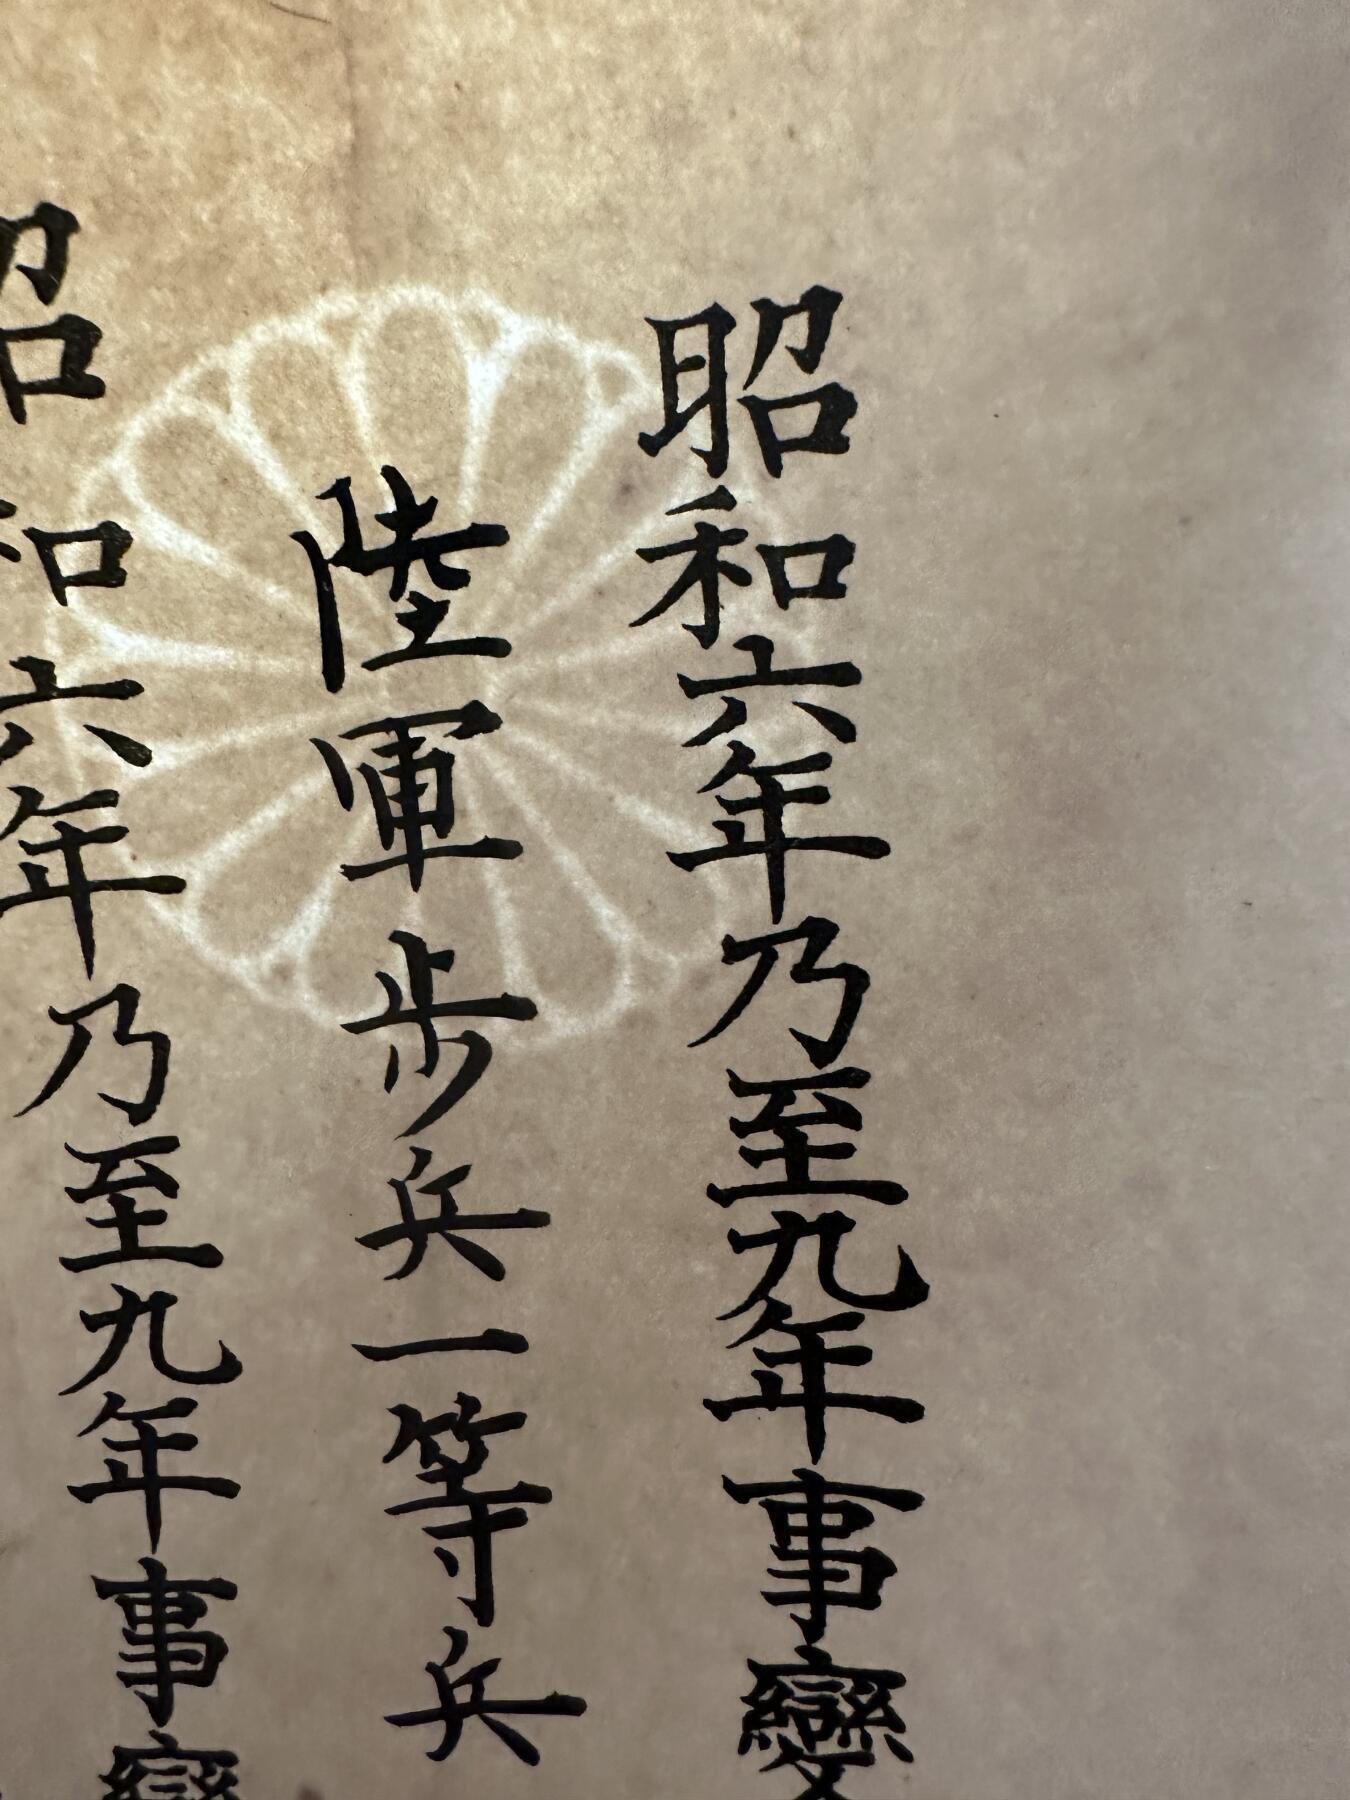 昭和六年乃至九年事變
陸軍步兵一等兵
昭和六年乃至九年事變